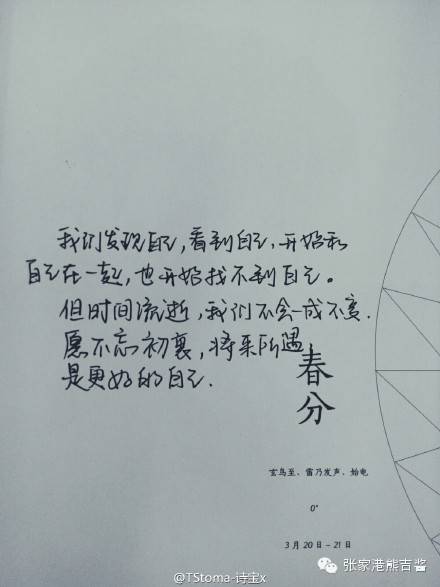 我们发现自己,看到自己,开始和
自己在一起,也开始找不到自己。
但时间流逝,我们不会一成不变.
愿不忘初衷,将来所遇
是更好的自己.
春
分
玄鸟至、雷乃发声、始电
0°
3月20日-21日
张家港熊吉酱
@TStoma-诗宝x